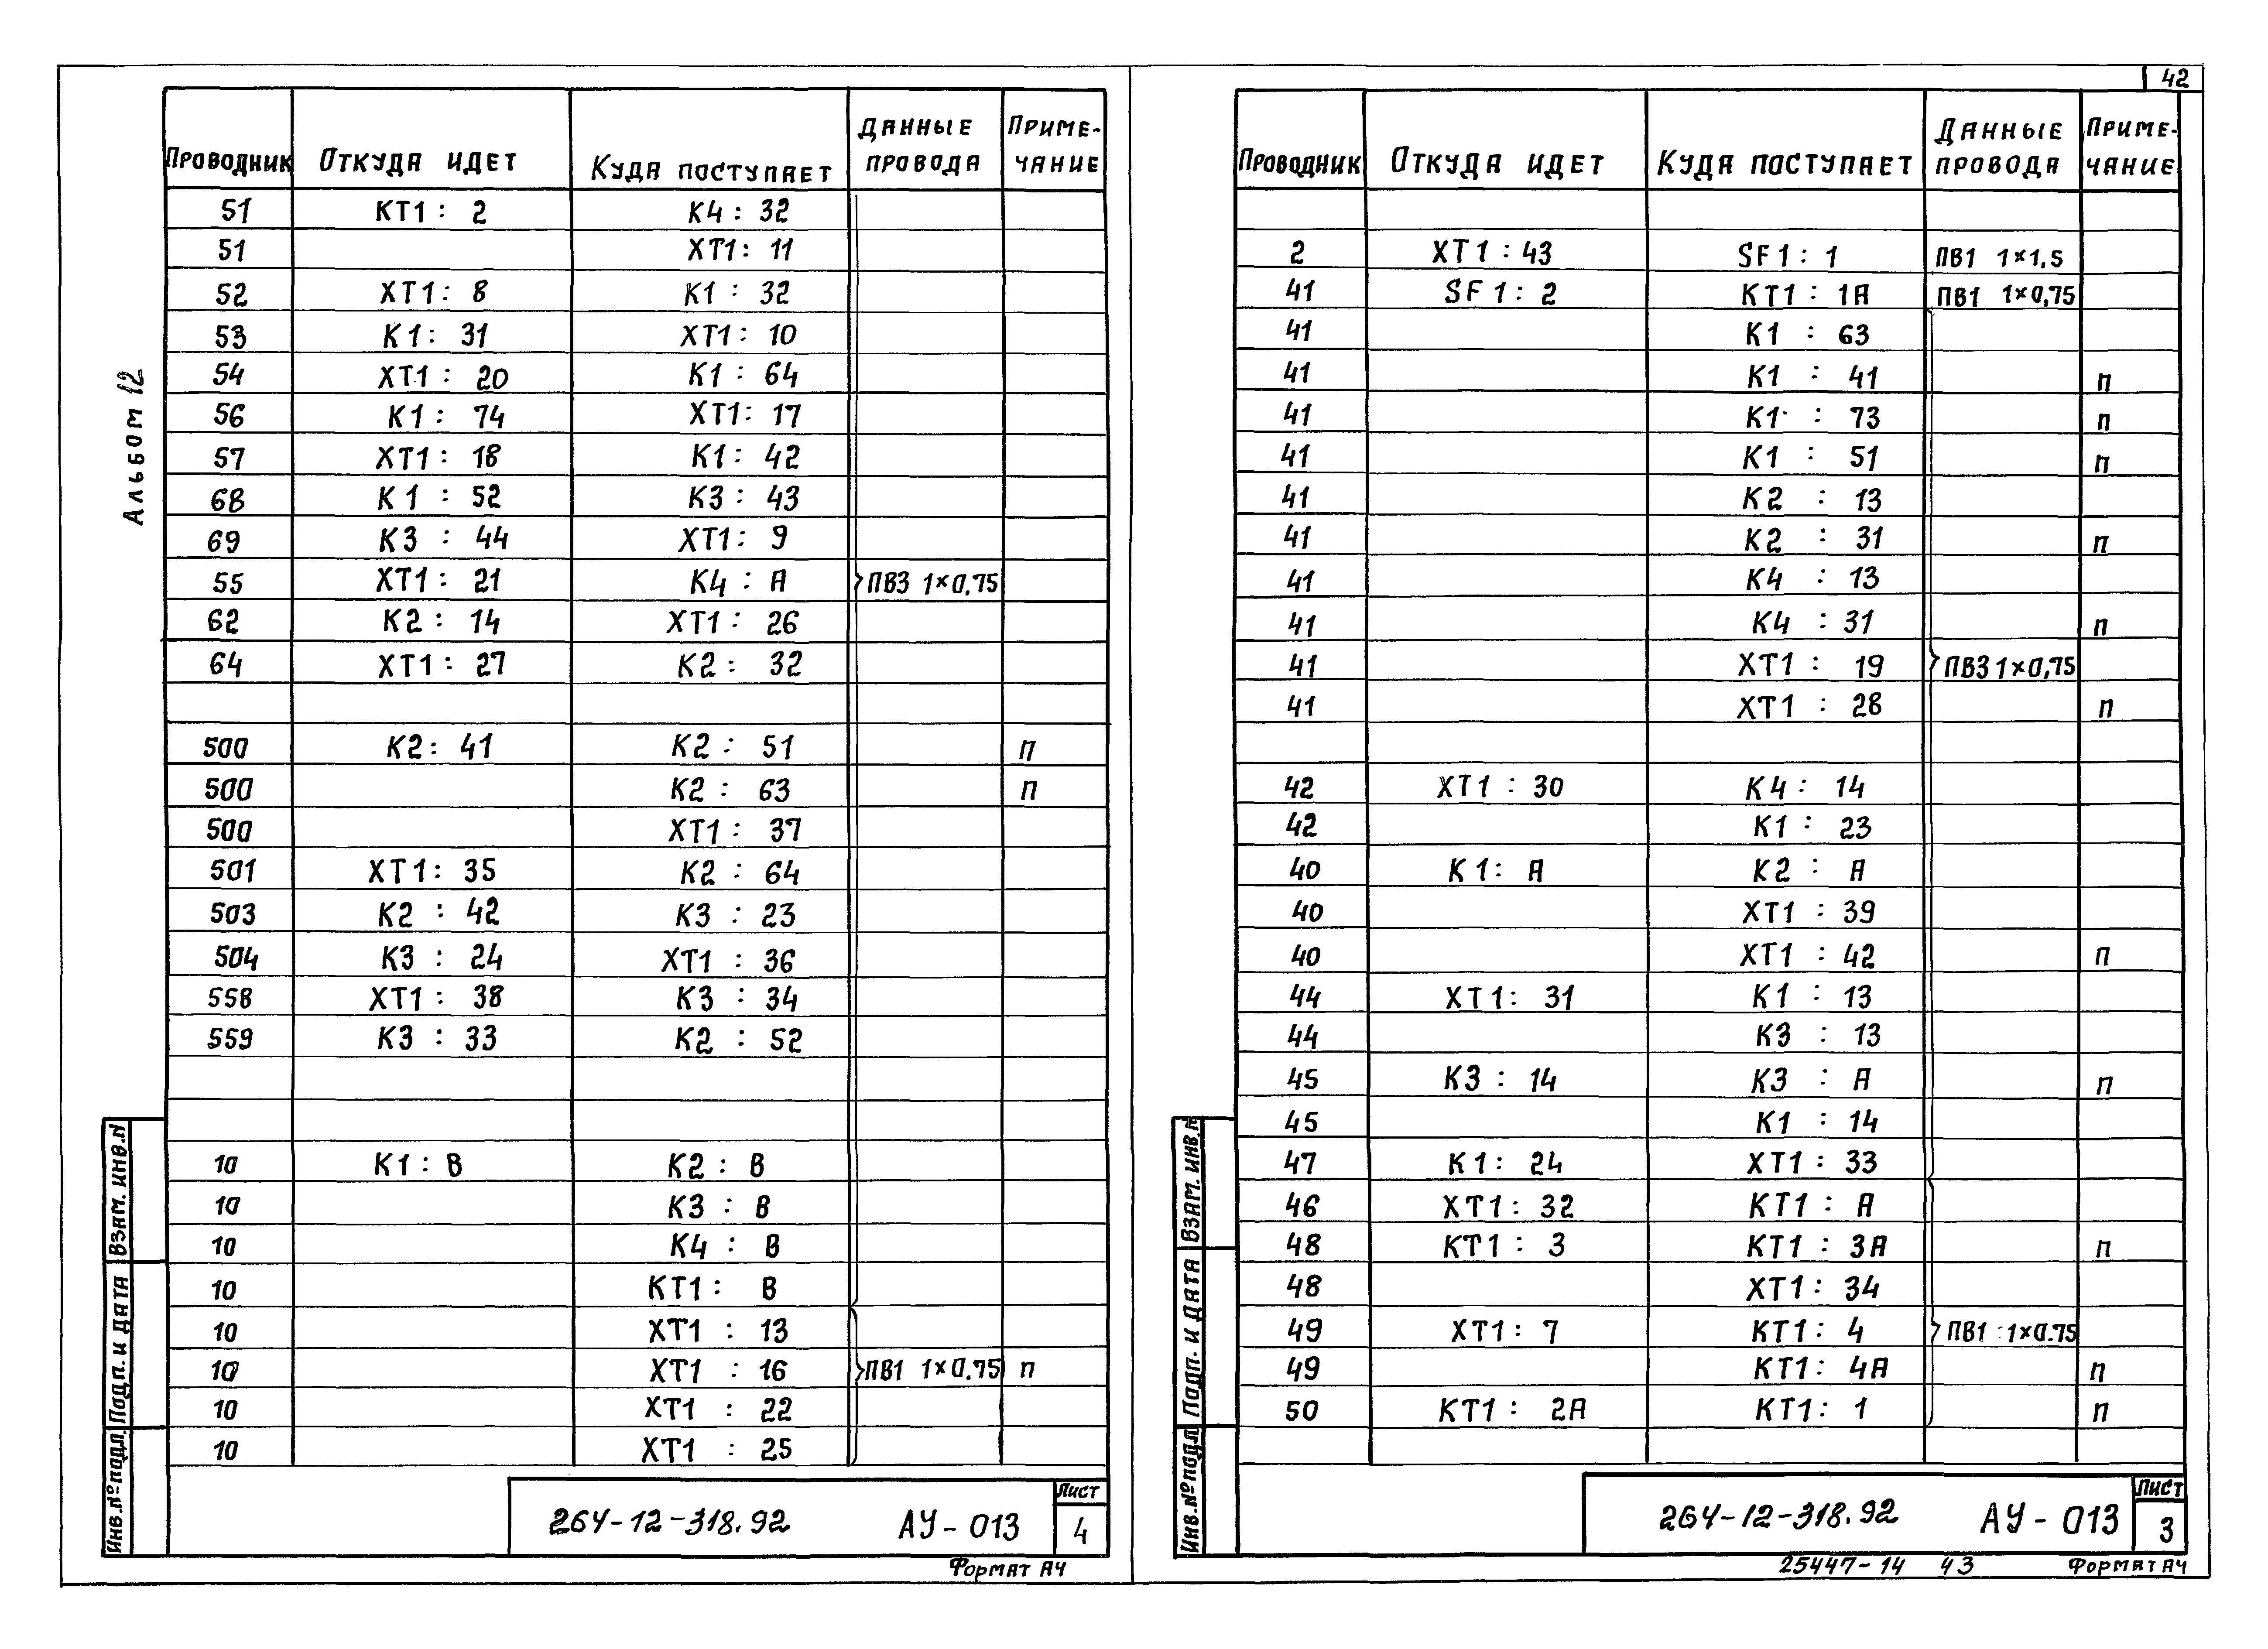 42
Альбом 12
Проводник Откуда идет Куда поступает Данные провода Примечание
51 КТ1: 2 К4: 32
51 ХТ1: 11
52 ХТ1: 8 К1: 32
53 К1: 31 ХТ1: 10
54 ХТ1: 20 К1: 64
56 К1: 74 ХТ1: 17
57 ХТ1: 18 К1: 42
68 К1: 52 К3: 43
69 К3: 44 ХТ1: 9
55 ХТ1: 21 К4: А ПВ3 1×0.75
62 К2: 14 ХТ1: 26
64 ХТ1: 27 К2: 32
500 К2: 41 К2: 51 п
500 К2: 63 п
500 ХТ1: 37
501 ХТ1: 35 К2: 64
503 К2: 42 К3: 23
504 К3: 24 ХТ1: 36
558 ХТ1: 38 К3: 34
559 К3: 33 К2: 52
10 К1: В К2: В
10 К3: В
10 К4: В
10 КТ1: В
10 ХТ1: 13
10 ХТ1: 16 ПВ1 1×0.75 п
10 ХТ1: 22
10 ХТ1: 25
Взам. инв. N
Подп. и дата
Инв. № подл.
264-12-318.92 АУ-013
Лист
4
Формат А4
Проводник Откуда идет Куда поступает Данные провода Примечание
2 ХТ1: 43 SF1: 1 ПВ1 1×1.5
41 SF1: 2 КТ1: 1А ПВ1 1×0,75
41 К1: 63
41 К1: 41 п
41 К1: 73 п
41 К1: 51 п
41 К2: 13
41 К2: 31 п
41 К4: 13
41 К4: 31 п
41 ХТ1: 19 ПВ3 1×0,75
41 ХТ1: 28 п
42 ХТ1: 30 К4: 14
42 К1: 23
40 К1: А К2: А
40 ХТ1: 39
40 ХТ1: 42 п
44 ХТ1: 31 К1: 13
44 К3: 13
45 К3: 14 К3: А п
45 К1: 14
47 К1: 24 ХТ1: 33
46 ХТ1: 32 КТ1: А
48 КТ1: 3 КТ1: 3А п
48 ХТ1: 34
49 ХТ1: 7 КТ1: 4 ПВ1 1×0.75
49 КТ1: 4А п
50 КТ1: 2А КТ1: 1 п
Взам. инв. N
Подп. и дата
Инв. № подл.
264-12-318.92 АУ-013
Лист
3
25447-14 43 Формат А4